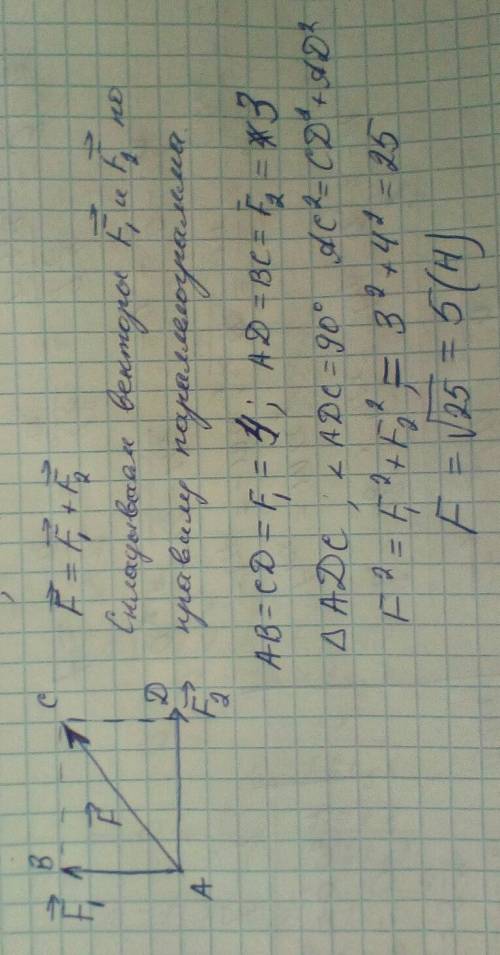 F⃗₁ B C
F⃗
A D
F⃗₂
F⃗ = F⃗₁ + F⃗₂
Складываем векторы F⃗₁ и F⃗₂ по
правилу параллелограмма
AB = CD = F₁ = 4; AD = BC = F₂ = 3
△ ADC, ∠ ADC = 90° AC² = CD² + AD²
F² = F₁² + F₂², = 3² + 4² = 25
F = √25 = 5 (Н)